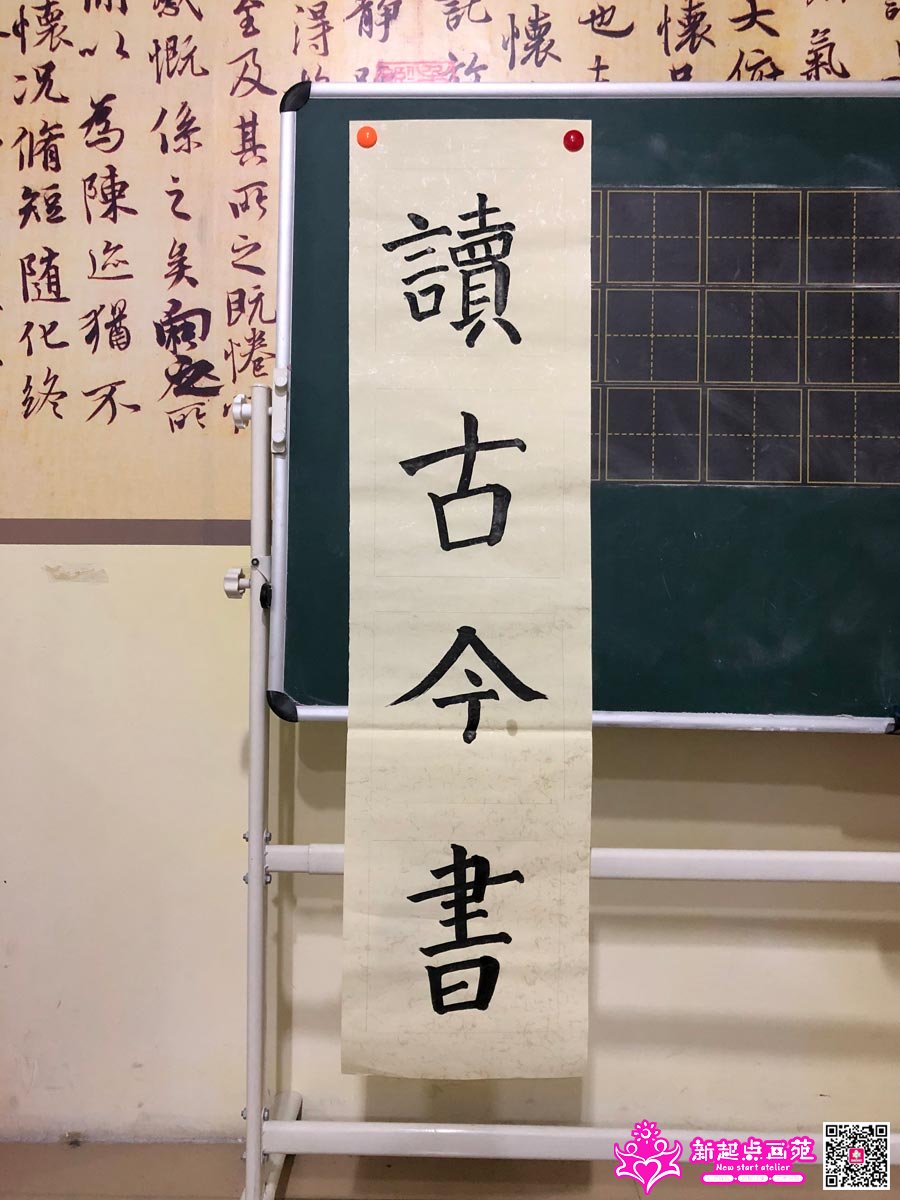 讀古今書
氣
大俯
懷
也
懷
託
靜
得
及其所之既惓
慨係之矣向之所
以為陳迹猶不
懷況脩短随化終
新起点画苑
New start atelier